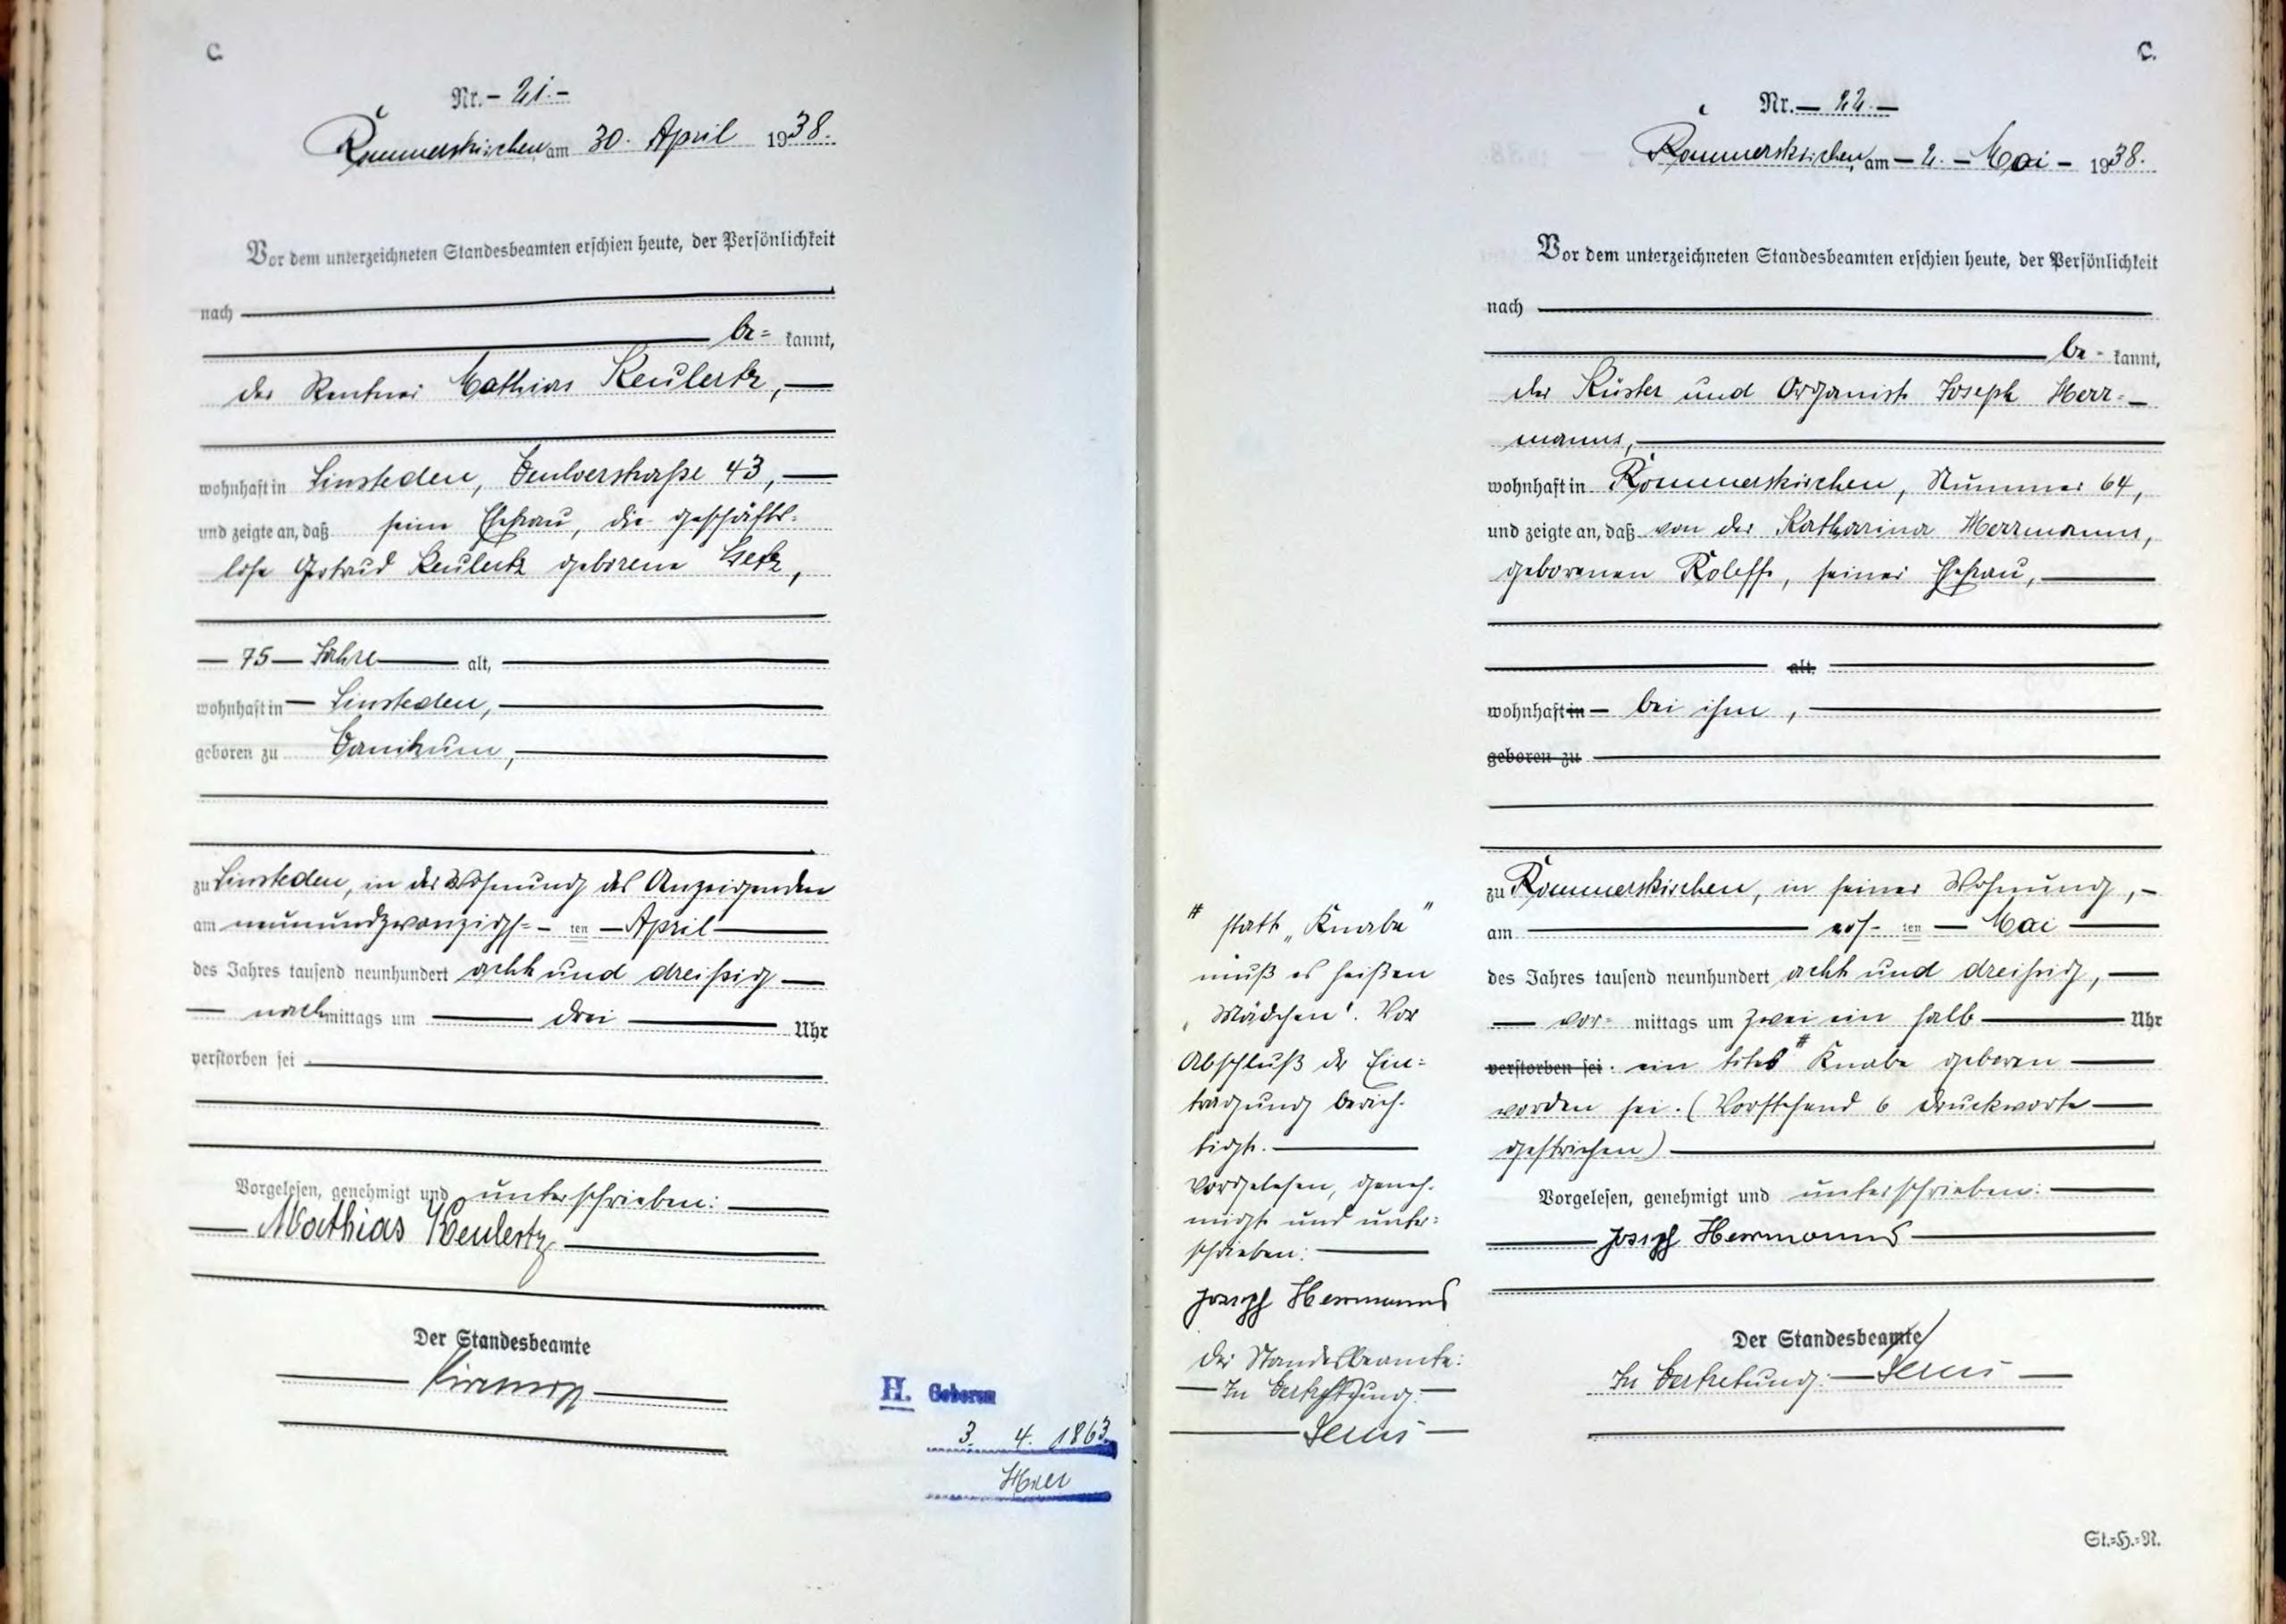 C.
Nr. - 21. -
Rommerskirchen, am 30. April 1938.
Vor dem unterzeichneten Standesbeamten erschien heute, der Persönlichkeit
nach
be= kannt,
der Rentner Mathias Keulertz,
wohnhaft in Sinsteden, 43,
und zeigte an, daß seine Ehefrau, die geschäfts=
lose Gertrud Keulertz geborene
75 Jahre alt,
wohnhaft in Sinsteden,
geboren zu Vanikum,
zu Sinsteden, in der Wohnung des Anzeigenden
am neunundzwanzigs= ten April
des Jahres tausend neunhundert acht und dreißig
nachmittags um drei Uhr
verstorben sei
Vorgelesen, genehmigt und unterschrieben:
Mathias Keulertz
Der Standesbeamte
H. Geboren
3. 4. 1863
C.
Nr. 22.
Rommerskirchen, am - 2. - Mai - 1938.
Vor dem unterzeichneten Standesbeamten erschien heute, der Persönlichkeit
nach
be= kannt,
der Küster und Organist Joseph Herr=
manns,
wohnhaft in Rommerskirchen, Nummer 64,
und zeigte an, daß von der Katharina Herrmanns,
geborenen Roleff, seiner Ehefrau,
alt,
wohnhaft in bei ihm,
geboren zu
zu Rommerskirchen, in seiner Wohnung,
am ers= ten Mai
des Jahres tausend neunhundert acht und dreißig,
vor= mittags um zwei ein halb Uhr
verstorben sei. ein totes # Knabe geboren
worden sei. (Vorstehend 6 Druckworte
gestrichen)
Vorgelesen, genehmigt und unterschrieben:
Joseph Herrmanns
Der Standesbeamte
In Vertretung:
# statt „Knabe"
muß es heißen
„Mädchen". Vor
Abschluß der Ein=
tragung berich=
tigt.
Vorgelesen, geneh=
migt und unter=
schrieben:
Joseph Herrmanns
Der Standesbeamte:
In Vertretung:
St.=H.=N.